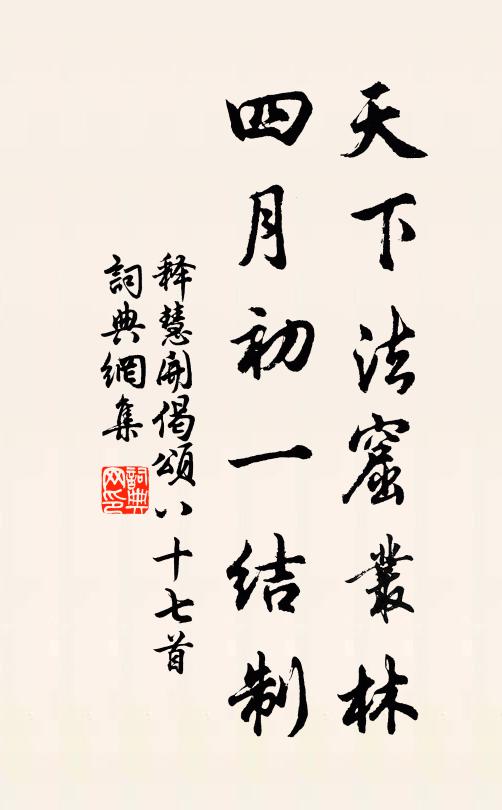 天下法窟叢林
四月初一結制
释慧開偈頌八十七首
詞典網集
詞典网印